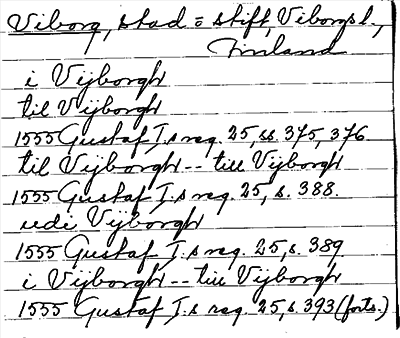 Viborg, stad o stift, Viborgs l.,
Finland
i Vijborgh
til Vijborgh
1555 Gustaf I.s reg. 25, ss. 375, 376
till Vijborgh -- till Vijborgh
1555 Gustaf I.s reg. 25, s. 388.
udi Vijborgh
1555 Gustaf I.s reg. 25, s. 389
i Vijborgh -- till Vijborgh
1555 Gustaf I.s reg. 25, s. 393 (forts.)